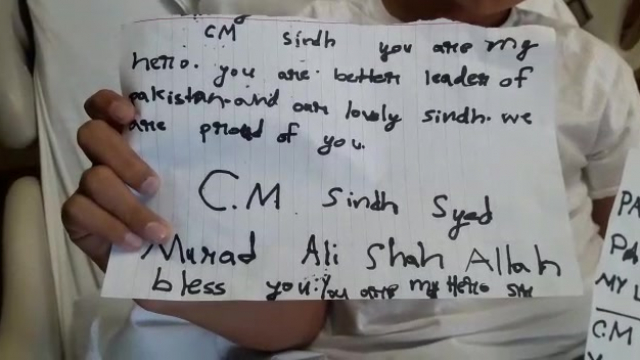 CM sindh you are my
hero. you are better leader of
pakistan and our lovely sindh. we
are proud of you.
C.M sindh Syed
Murad Ali Shah Allah
bless you. You are my Hero
PA
Pa
MY L
C.M